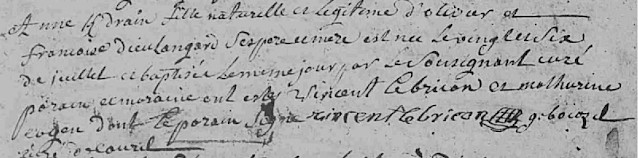 Anne drain fille naturelle et legitime d'olivier et
francoise Dieulangard ses pere et mere est nee le vingt et six
de juillet et baptisée le meme jour par le Sousignant curé
parain et moraine ont este Vincent lebricon et mathurine
dont le parain signe vincent lebricon